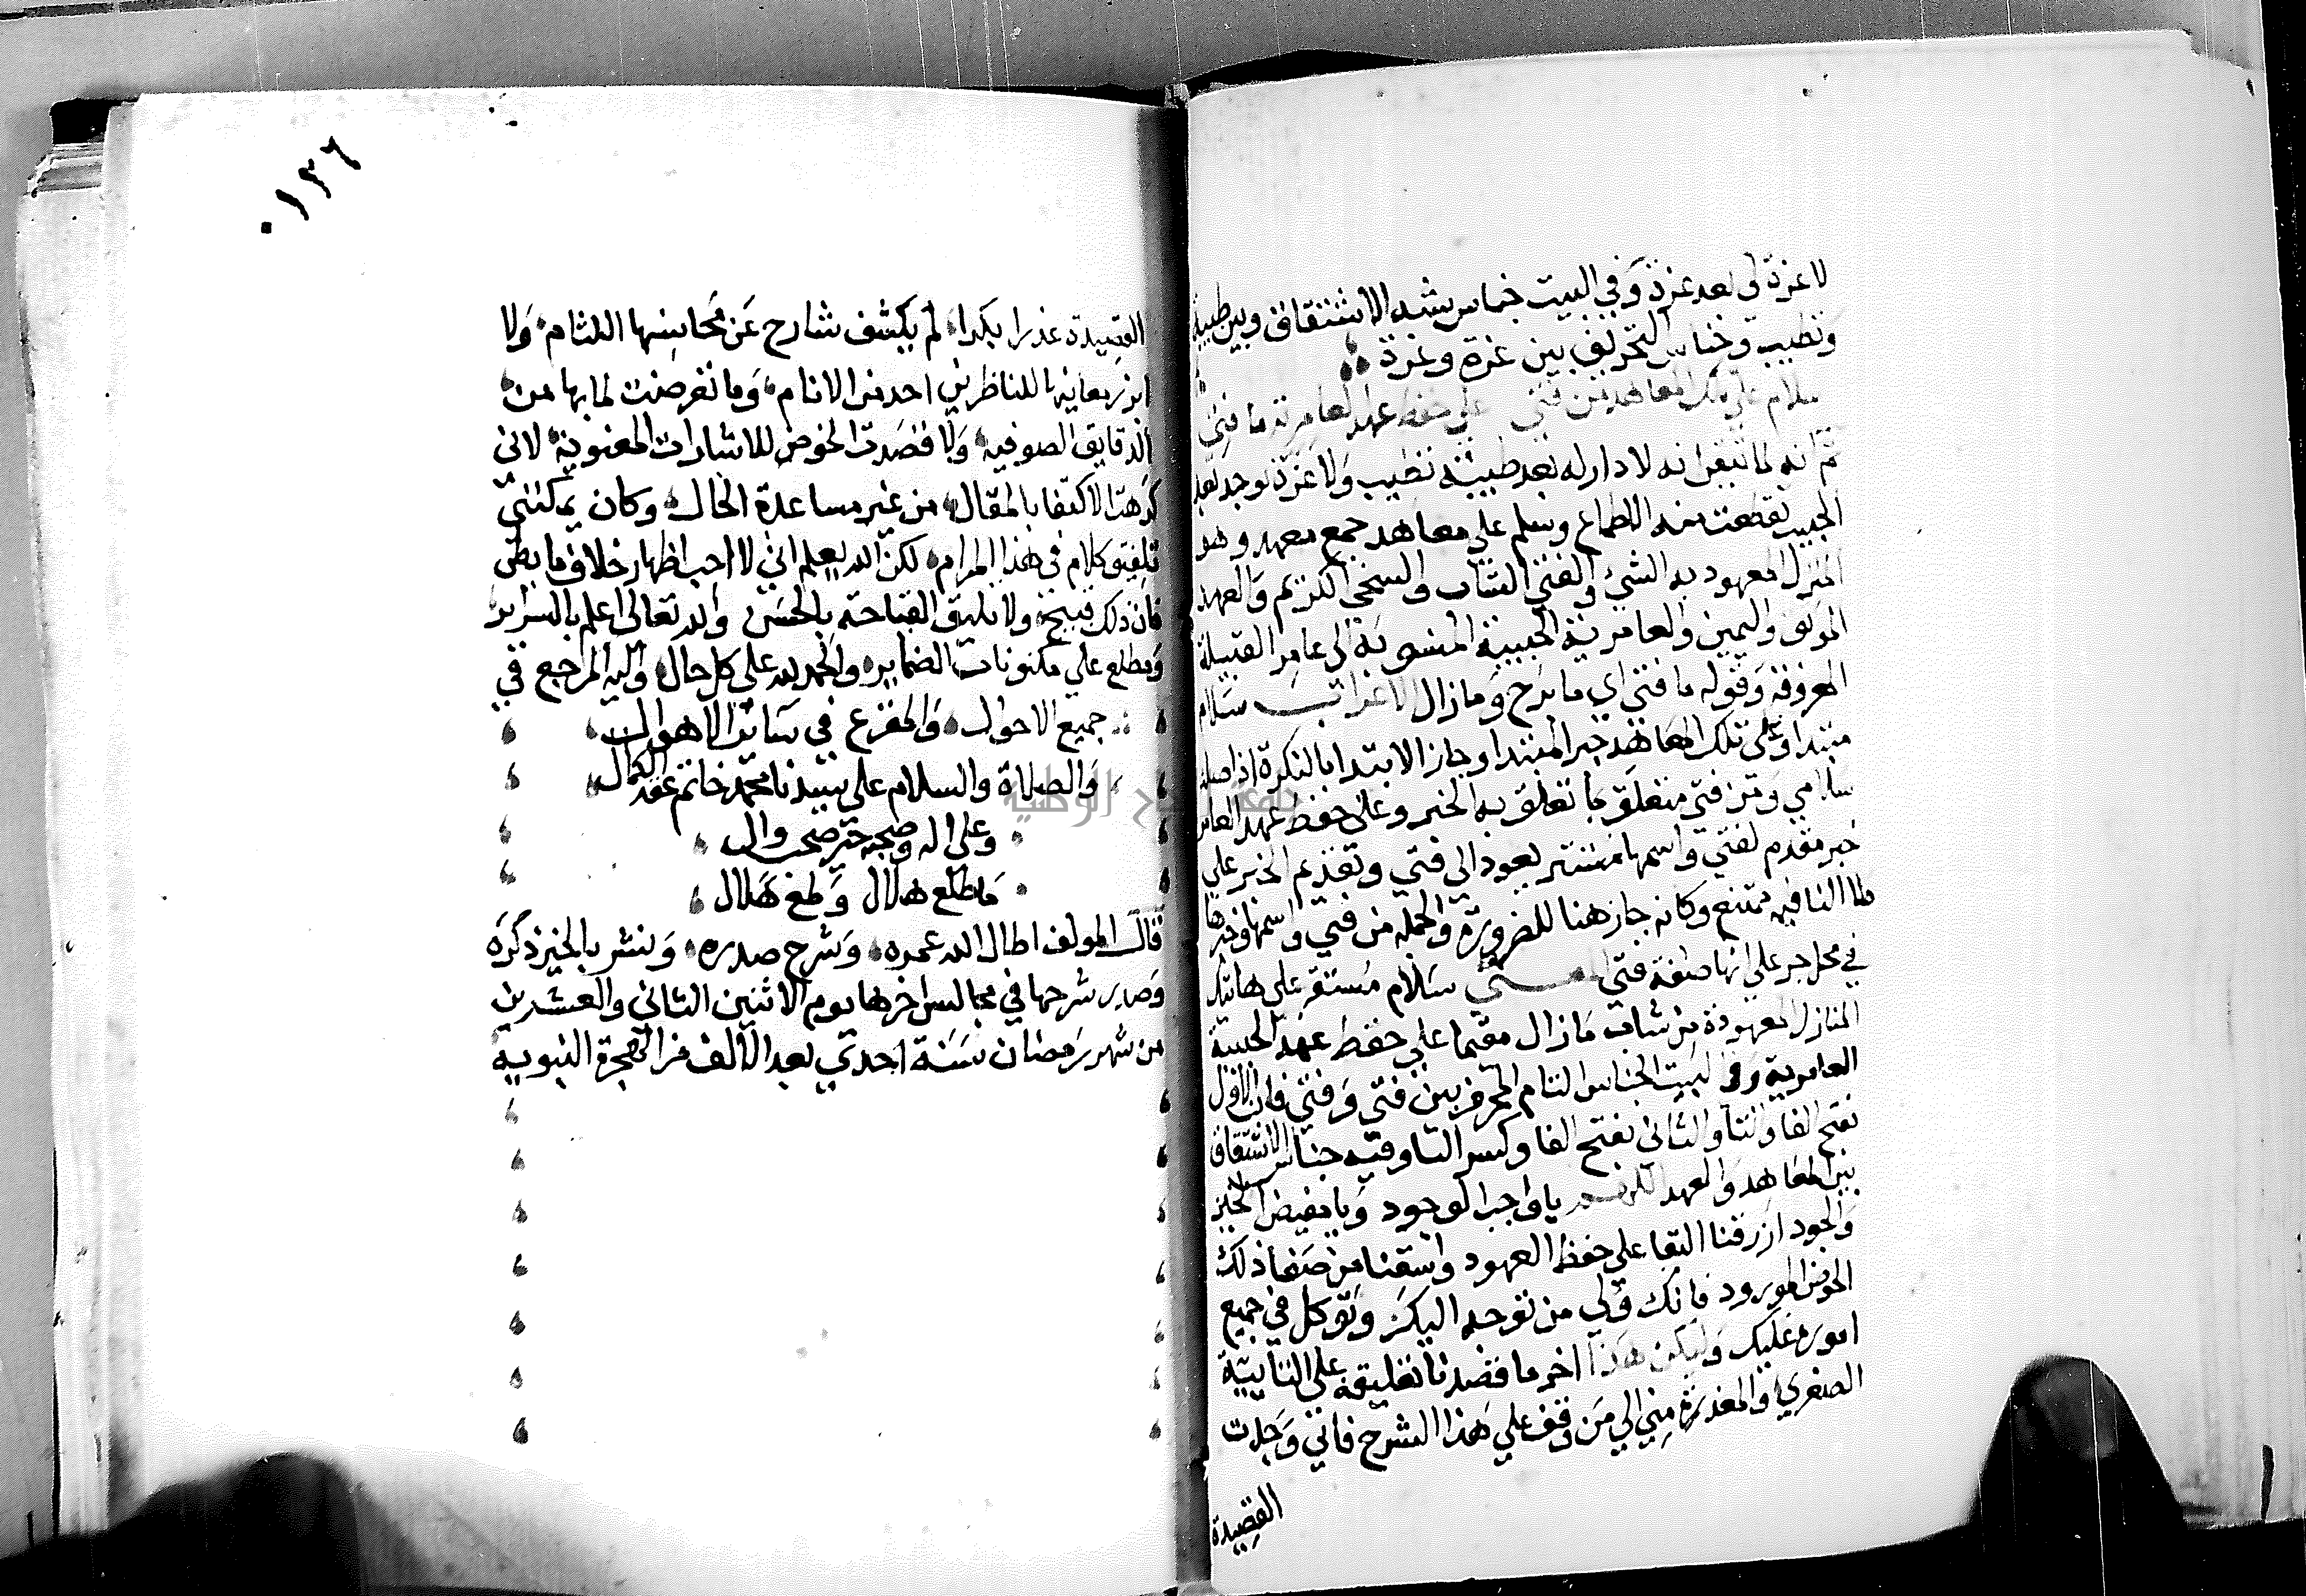 لا عزة لي بعد عزة وفي البيت جناس شبه الاشتقاق وبين طيبة
وتطيب وجناس التحريف بين عزة وغرة
سلام على تلك المعاهد من فتى على حفظ عهد العامرية ما فتي
ثم انه لما تيقن انه لا دار له بعد طيبة تطيب ولا عزة توجد بعد
الحبيب تقطعت منه الاطماع وسلم على معاهد جمع معهد وهو
المنزل المعهود به الشيء والفتى الشاب والسخي الكريم والعهد
الموثق واليمين والعامرية الحبيبة المنسوبة الى عامر القبيلة
المعروفة وقوله ما فتي اي ما برح وما زال الاعراب سلام
مبتدا وعلى تلك المعاهد خبر المبتدا وجاز الابتدا بالنكرة اذ اصله
سلامي ومن فتى متعلق بما تعلق به الخبر وعلى حفظ عهد العامرية
خبر مقدم لفتي واسمها مستتر يعود الى فتى وتقديم الخبر على
ما النافيه ممتنع وكانه جاز هنا للضرورة والجمله من فتي واسمها وخبرها
في محل جر على انها صفة فتى المعنى سلام مستقر على هاتيك
المنازل المعهودة من شاب ما زال مقيما على حفظ عهد الحبيبة
العامرية وفي البيت الجناس التام المحرف بين فتى وفتي فان الاول
بفتح الفا والتا والثاني بفتح الفا وكسر التا وفيه جناس الاشتقاق
بين المعاهد والعهد اللهم يا واجب الوجود ويا مفيض الخير
والجود ارزقنا البقا على حفظ العهود واسقنا من صفا ذلك
الحوض المورود فانك ولي من توجه اليك وتوكل في جميع
اموره عليك وليكن هذا اخر ما قصدنا تعليقه على التائية
الصغرى والمعذرة مني الى من وقف على هذا الشرح فاني وجدت
القصيدة
٠١٣٦
القصيدة عذرا بكرا لم يكشف شارح عن محاسنها اللثام ولا
ابرز معانيها للناظرين احد من الانام وما تعرضت لما بها من
الدقايق الصوفية ولا قصدت الخوض للاشارات المعنوية لاني
كرهت الاكتفا بالمقال من غير مساعدة الحال وكان يمكنني
تلفيق كلام في هذا المرام لكن الله يعلم اني لا احب اظهار خلاف ما بطن
فان ذلك قبيح ولا تليق القباحة بالحسن والله تعالى اعلم بالسراير
ومطلع على مكنونات الضماير والحمد لله على كل حال واليه المرجع في
جميع الاحوال والمفزع في ساير الاهوال
والصلاة والسلام على سيدنا محمد خاتم عقد الكمال
وعلى اله وصحبه خير صحب وال
ما طلع هلال ولمع هلال
قال المولف اطال الله عمره وشرح صدره ونشر بالخير ذكره
وصدر شرحها في مجالس اخرها يوم الاثنين الثاني والعشرين
من شهر رمضان سنة احدى بعد الالف من الهجرة النبويه